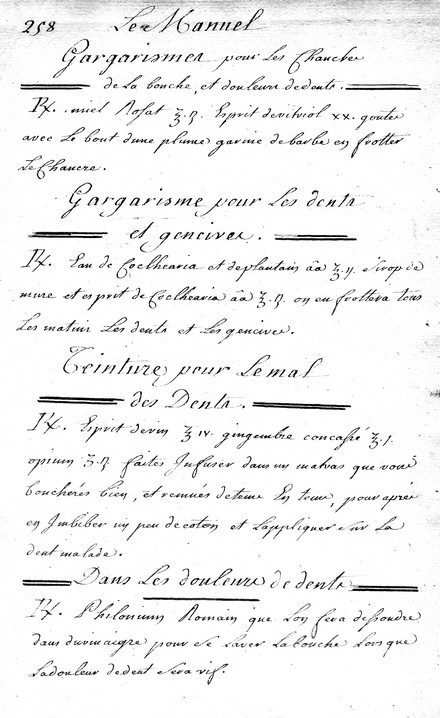 258 Le Manuel
Gargarismes pour Les Chancres
de la bouche, et douleurs de dents.
℞. miel Rosat ℥.ß. Esprit de vitriol xx. goutes
avec Le bout d'une plume garnie de barbe en frotter
Le Chancre.
Gargarisme pour Les dents
et gencives.
℞. Eau de Coclhearia et de plantain āā ℥.ij. Sirop de
mure et esprit de Coclhearia āā ℥.ß. on en frottera tous
Les matins Les dents et Les gencives.
Teinture pour Le mal
des Dents.
℞. Esprit de vin ℥ iv. gingembre concassé
opium faites Infuser dans un matras que vous
boucherés bien, et remués de tems En tems, pour aprés
en Imbiber un peu de coton et L'appliquer sur La
dent malade.
Dans Les douleurs de dents
℞. Philonium Romain que L'on fera dissoudre
dans du vinaigre pour se Laver La bouche Lors que
La douleur de dent sera vif.